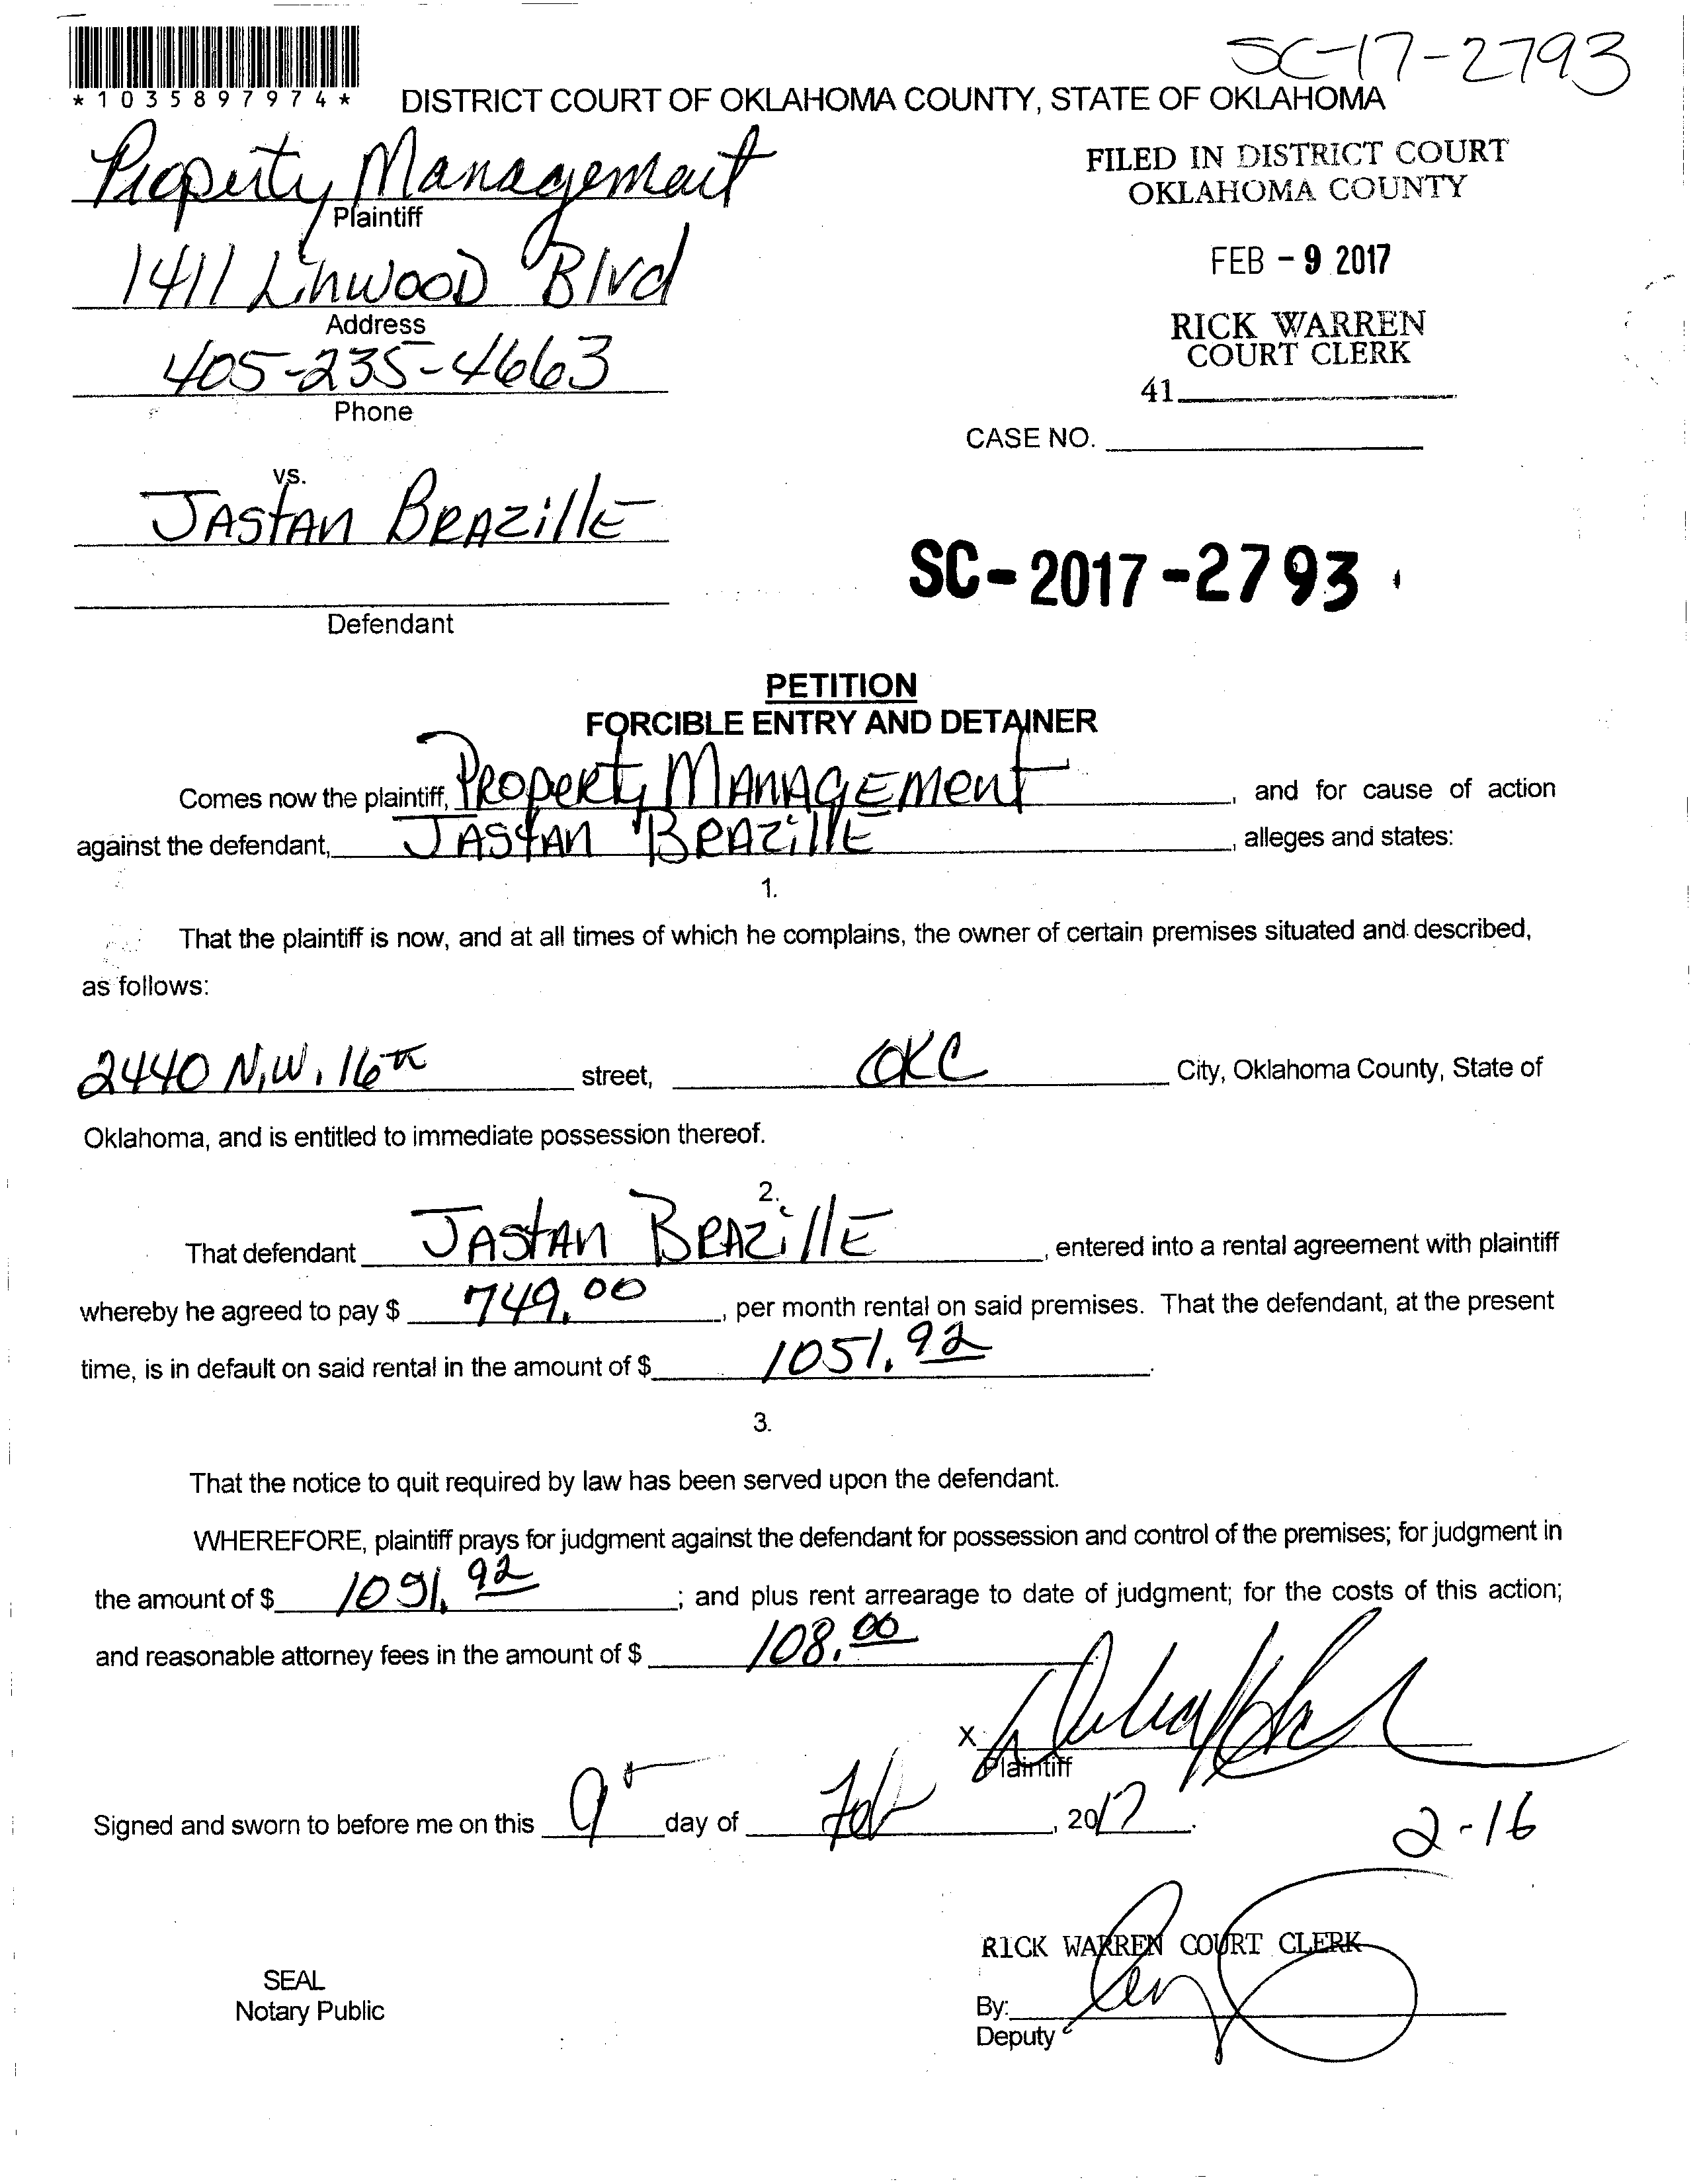 SC-17-2793
*1035897974*
DISTRICT COURT OF OKLAHOMA COUNTY, STATE OF OKLAHOMA
Property Management
Plaintiff
FILED IN DISTRICT COURT
OKLAHOMA COUNTY
1411 Linwood Blvd
Address
FEB - 9 2017
405-235-4663
Phone
RICK WARREN
COURT CLERK
41
CASE NO.
vs.
JAStAN BRAZillE
Defendant
SC-2017-2793
PETITION
FORCIBLE ENTRY AND DETAINER
Comes now the plaintiff, PRopeRty MANAGEMent, and for cause of action
against the defendant, JAStAN BRAZillE, alleges and states:
1.
That the plaintiff is now, and at all times of which he complains, the owner of certain premises situated and described,
as follows:
2440 N.W. 16th street, OKC City, Oklahoma County, State of
Oklahoma, and is entitled to immediate possession thereof.
2.
That defendant JAStAN BRAZillE, entered into a rental agreement with plaintiff
whereby he agreed to pay $ 749.00, per month rental on said premises. That the defendant, at the present
time, is in default on said rental in the amount of $ 1051.92.
3.
That the notice to quit required by law has been served upon the defendant.
WHEREFORE, plaintiff prays for judgment against the defendant for possession and control of the premises; for judgment in
the amount of $ 1091.92; and plus rent arrearage to date of judgment; for the costs of this action;
and reasonable attorney fees in the amount of $ 108.00
X
Plaintiff
Signed and sworn to before me on this 9 day of Feb, 2017.
2-16
RICK WARREN COURT CLERK
SEAL
Notary Public
By:
Deputy